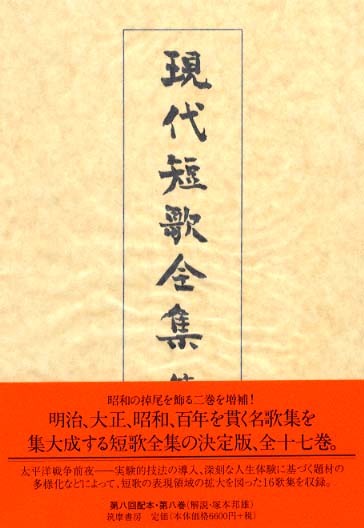 現代短歌全集
昭和の掉尾を飾る二巻を増補!
明治、大正、昭和、百年を貫く名歌集を
集大成する短歌全集の決定版、全十七巻。
太平洋戦争前夜――実験的技法の導入、深刻な人生体験に基づく題材の
多様化などによって、短歌の表現領域の拡大を図った16歌集を収録。
第八回配本・第八巻(解説・塚本邦雄)
筑摩書房 定価(本体価格6600円+税)